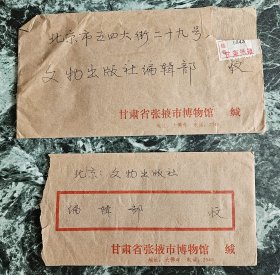 北京市五四大街二十九号
文物出版社编辑部 收
甘肃省张掖市博物馆 缄
北京：文物出版社
编辑部 收
甘肃省张掖市博物馆 缄